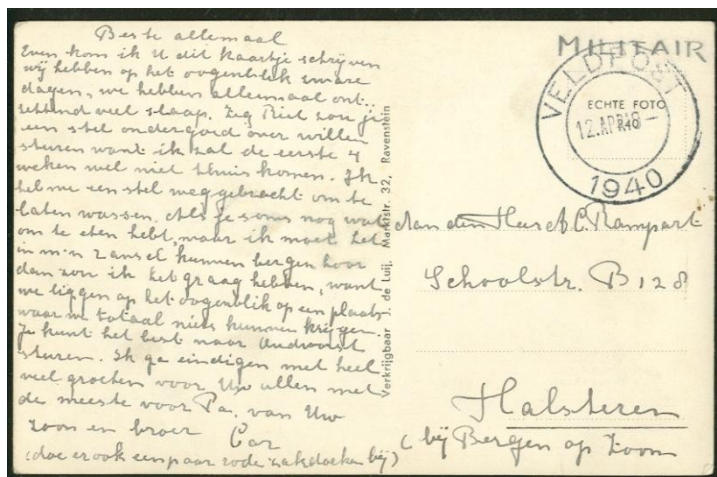 Beste allemaal
Even kom ik U dit kaartje schrijven
wij hebben op het oogenblik zware
dagen, we hebben allemaal ont-
zettend veel slaap. Zeg Riet zou je
een stel ondergoed over willen
sturen want ik zal de eerste 4
weken wel niet thuis komen. Ik
heb me een stel weggebracht om te
laten wassen. Als je soms nog wat
om te eten hebt, maar ik moet het
in m'n ransel kunnen bergen hoor
dan zou ik het graag hebben, want
we liggen op het oogenblik op een plaats
waar we totaal niets kunnen krijgen.
Je kunt het best naar
sturen. Ik ga eindigen met heel
veel groeten voor Uw allen met
de meeste voor Pa. van Uw
zoon en broer Cor
(doe er ook een paar rode zakdoeken bij)
Verkrijgbaar J. de Luij, Marktstr. 32, Ravenstein
MILITAIR
VELDPOST
ECHTE FOTO
12.APR.18-
1940
Aan den Heer A.C. Rampart
Schoolstr. B 128
Halsteren
(bij Bergen op Zoom